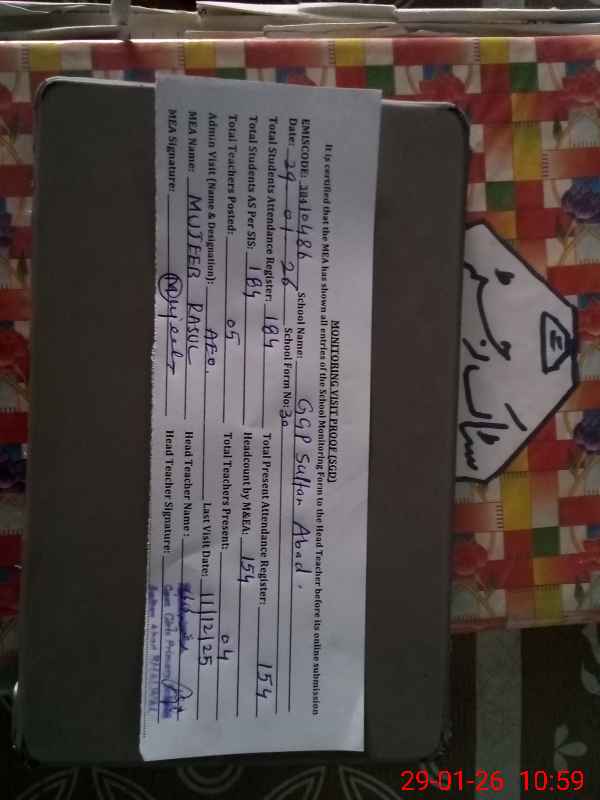 MONITORING VISIT PROOF (SGD)
It is certified that the MEA has shown all entries of the School Monitoring Form to the Head Teacher before its online submission
EMISCODE: 38410486 School Name: GGP Sultan Abad.
Date: 29-01-26 School Form No: 30
Total Students Attendance Register: 184 Total Present Attendance Register: 154
Total Students AS Per SIS: 184 Headcount by M&EA: 154
Total Teachers Posted: 05 Total Teachers Present: 04
Admin Visit (Name & Designation): AEO. Last Visit Date: 11/12/25
MEA Name: MUJEEB RASUL Head Teacher Name:
MEA Signature: Mujeeb Head Teacher Signature:
Govt. Girls Primary
Sultan Abad
سٹاک رجسٹر
29-01-26 10:59